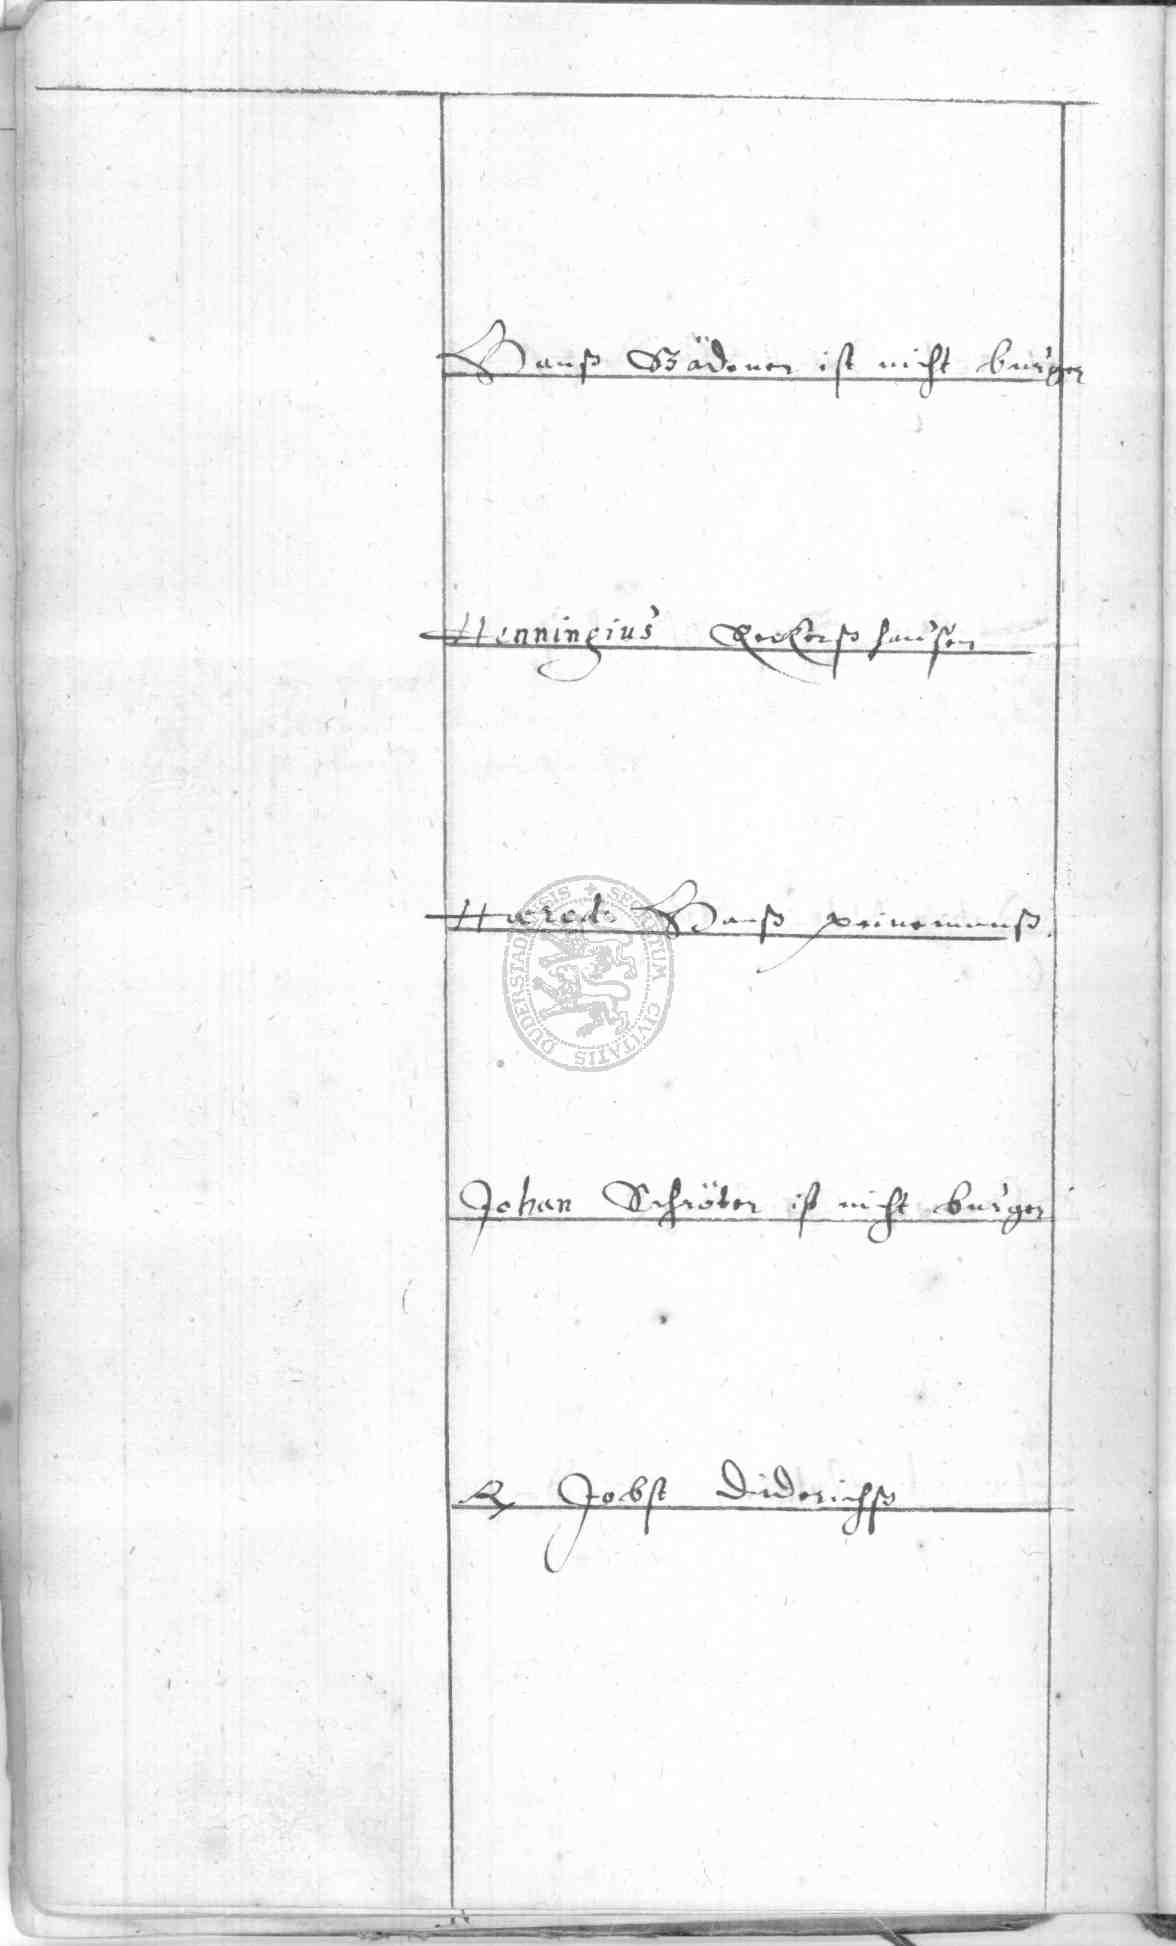 Hanß Bädener ist nicht burger
Henningius Reckerßhausen
Hæred: Hanß Peinemanß.
Johan Schröter ist nicht burger
R Jobst Diderichß
SECRETUM CIVITATIS DUDERSTADENSIS